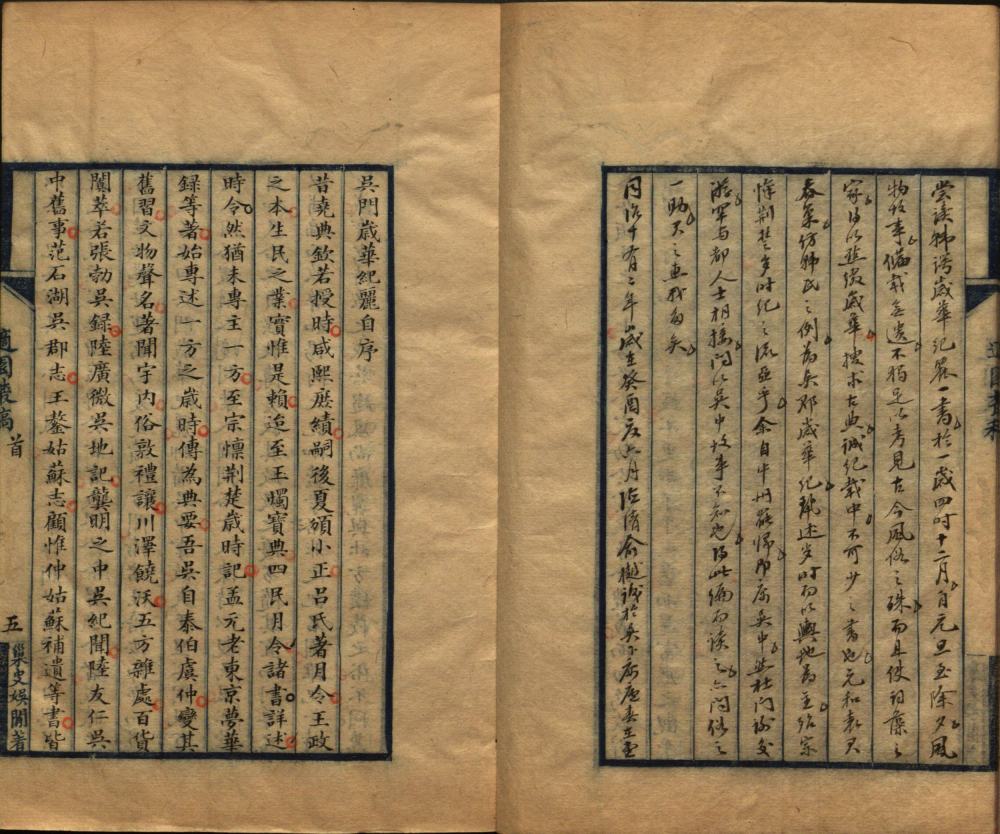 嘗讀韩諤歲華紀麗一書於一歲四时十二月自元旦至除夕風
物故事備載無遺不獨足以考見古今風俗之殊而且使詞藻之
家得以點綴歲華搜求古典誠紀載中不可少之書也元和袁君
春巢仿韩氏之例爲吳郡歲華紀麗述歲时而以輿地爲主殆宗
懍荆楚歲时紀之流亞乎余自中州罷歸即居吳中然杜门谢交
游罕与都人士相接问以吳中故事不知也得此编而读之亦问俗之
一助天之惠我多矣
同治十有二年歲在癸酉夏六月德清俞樾識於吳下寓廬春在堂
吳門歲華紀麗自序
昔堯典欽若授時咸熙庶績嗣後夏頒小正呂氏著月令王政
之本生民之業實惟是賴迨至王燭寶典四民月令諸書詳述
時令然猶未專主一方至宗懍荆楚歲時記孟元老東京夢華
録等著始專述一方之歲時傳為典要吾吳自泰伯虞仲變其
舊習文物聲名著聞宇内俗敦禮讓川澤饒沃五方雜處百貨
闐萃若張勃吳録陸廣微吳地記龔明之中吳紀聞陸友仁吳
中舊事范石湖吳郡志王鏊姑蘇志顧惟仲姑蘇補遺等書皆
適園叢稿 首
五
巢史娛閒著